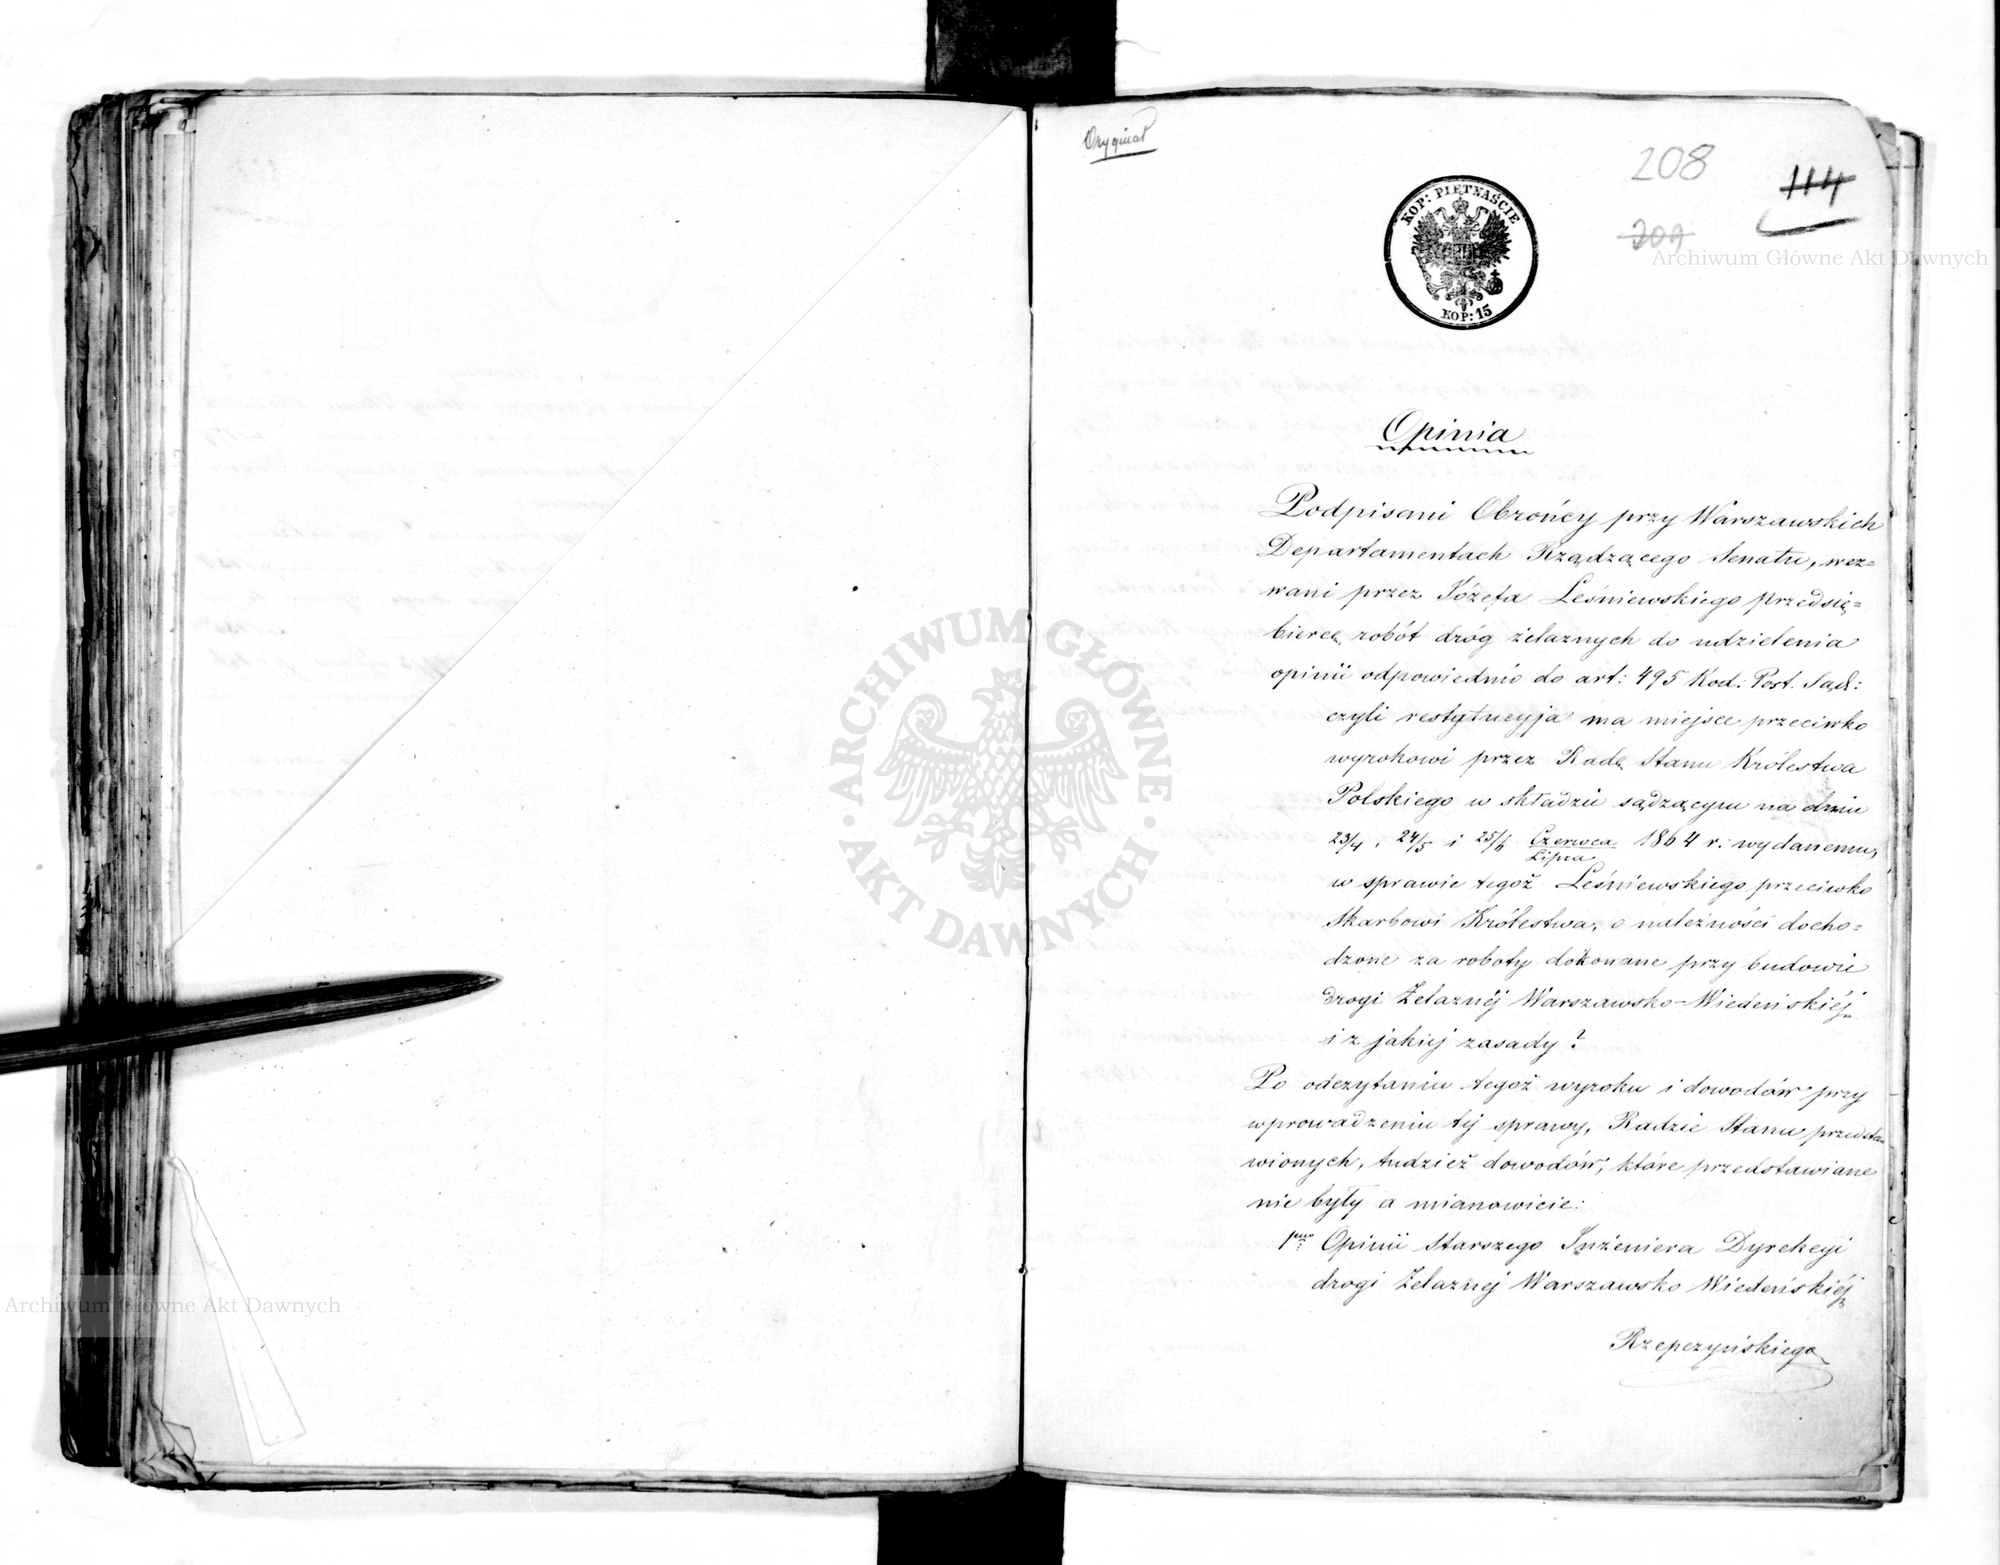 Oryginał
208
114
209
KOP: PIĘTNAŚCIE
KOP: 15
Archiwum Główne Akt Dawnych
Opinia
Podpisani Obrońcy przy Warszawskich
Departamentach Rządzącego Senatu, wez=
wani przez Józefa Leśniewskiego przedsię=
biercę robót dróg żelaznych do udzielenia
opinii odpowiednio do art: 495 Kod: Post. Sąd:
czyli restytucyja ma miejsce przeciwko
wyrokowi przez Radę Stanu Królestwa
Polskiego w składzie sądzącym na dniu
23/4, 24/5 i 25/6 Czerwca/Lipca 1864 r: wydanemu,
w sprawie tegoż Leśniewskiego przeciwko
Skarbowi Królestwa, o należności docho=
dzone za roboty dokonane przy budowie
drogi Żelaznéj Warszawsko-Wiedeńskiéj
i z jakiej zasady?
Po odczytaniu tegoż wyroku i dowodów przy
wprowadzeniu téj sprawy, Radzie Stanu przedsta=
wionych, tudzież dowodów, które przedstawiane
nie były a mianowicie:
1mo Opinii Starszego Inżeniera Dyrekcyi
drogi Żelaznej Warszawsko Wiedeńskiéj
Rzepczyńskiego
ARCHIWUM GŁÓWNE
AKT DAWNYCH
Archiwum Główne Akt Dawnych